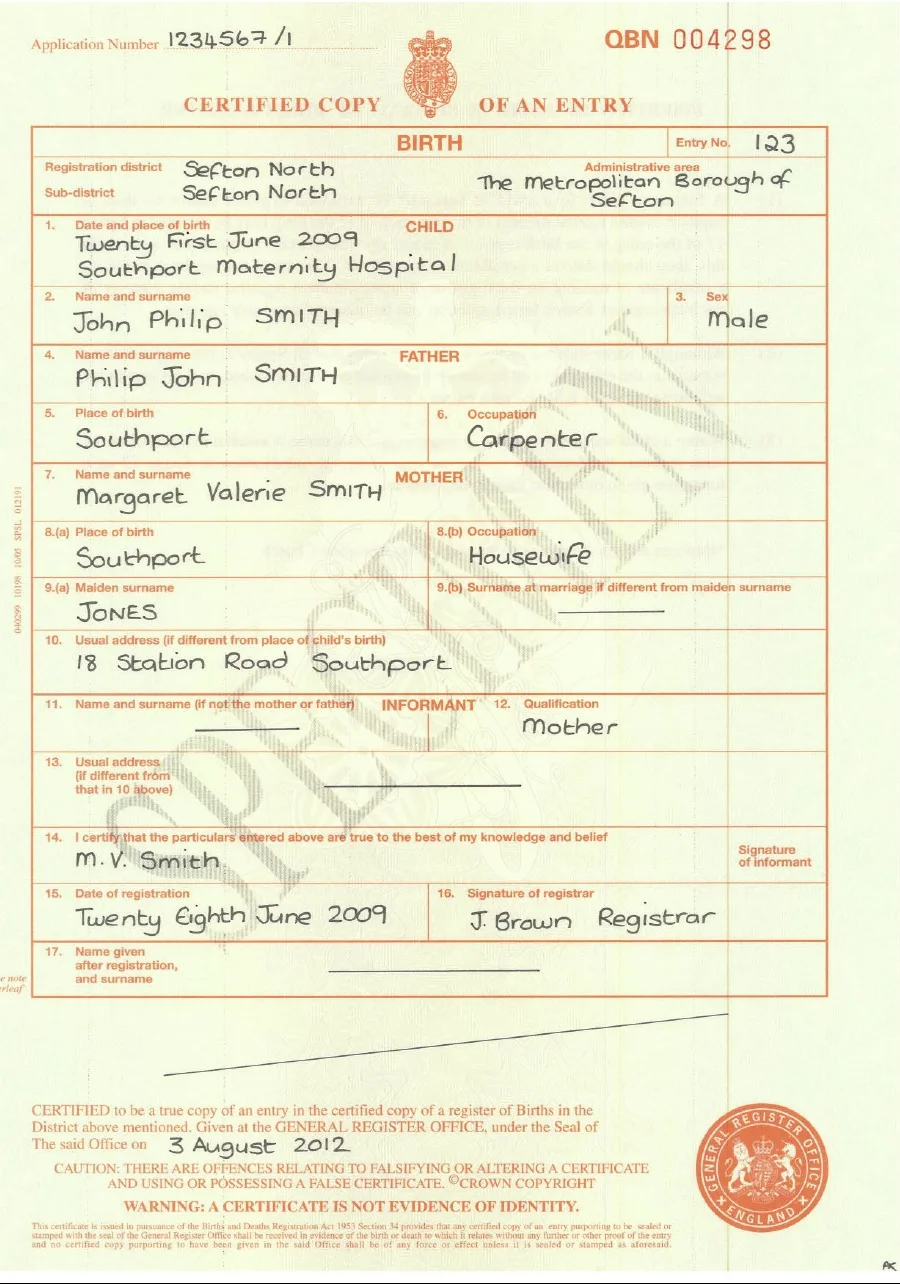 Application Number 1234567/1
QBN 004298
CERTIFIED COPY OF AN ENTRY
BIRTH
Entry No. 123
Registration district Sefton North
Administrative area
Sub-district Sefton North
The Metropolitan Borough of
Sefton
1. Date and place of birth CHILD
Twenty First June 2009
Southport Maternity Hospital
2. Name and surname
John Philip SMITH
3. Sex
Male
4. Name and surname FATHER
Philip John SMITH
5. Place of birth
Southport
6. Occupation
Carpenter
7. Name and surname MOTHER
Margaret Valerie SMITH
8.(a) Place of birth
Southport
8.(b) Occupation
Housewife
9.(a) Maiden surname
JONES
9.(b) Surname at marriage if different from maiden surname
10. Usual address (if different from place of child's birth)
18 Station Road Southport
11. Name and surname (if not the mother or father) INFORMANT
12. Qualification
Mother
13. Usual address
(if different from
that in 10 above)
14. I certify that the particulars entered above are true to the best of my knowledge and belief
M. V. Smith
Signature
of informant
15. Date of registration
Twenty Eighth June 2009
16. Signature of registrar
J. Brown Registrar
17. Name given
after registration,
and surname
SPECIMEN
040299 10198 10/05 SPSL 012191
e note
erleaf
CERTIFIED to be a true copy of an entry in the certified copy of a register of Births in the
District above mentioned. Given at the GENERAL REGISTER OFFICE, under the Seal of
The said Office on 3 August 2012
CAUTION: THERE ARE OFFENCES RELATING TO FALSIFYING OR ALTERING A CERTIFICATE
AND USING OR POSSESSING A FALSE CERTIFICATE. ©CROWN COPYRIGHT
WARNING: A CERTIFICATE IS NOT EVIDENCE OF IDENTITY.
This certificate is issued in pursuance of the Births and Deaths Registration Act 1953 Section 34 provides that any certified copy of an entry purporting to be sealed or
stamped with the seal of the General Register Office shall be received in evidence of the birth or death to which it relates without any further or other proof of the entry
and no certified copy purporting to have been given in the said Office shall be of any force or effect unless it is sealed or stamped as aforesaid.
GENERAL REGISTER OFFICE
ENGLAND